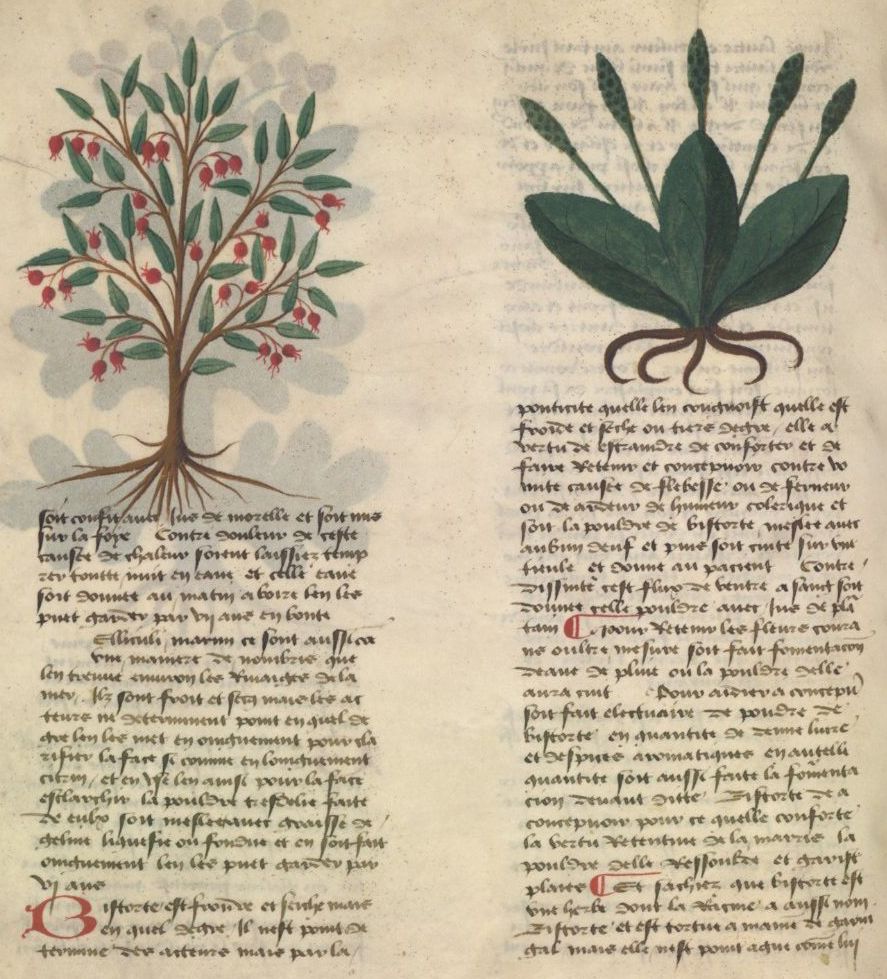 soit confit avec Jus de morelle et soit mis
sur la foye Contre douleur de teste
causee de chaleur soient laissiez temp
rer toutte nuit en eaue et celle eaue
soit donnee au matin a boire len les
puet garder par vij ans en bonte
Elliculi marini ce sont aussi co
vne maniere de nombris que
len treuue enuiron les Riuaiges de la
mer. Ilz sont froit et secz mais les ac
teurs ne determinent point en quel de
gre len les met en oinguement pour cla
rifier la face si comme en loinguement
citrin / et en vse len ainsi pour la face
esclarchir la pouldre tresdelie faitte
de eulx soit meslee avec graisse de
geline liquefie ou fondue et en soit fait
oinguement len les puet garder par
vj ans
Bistorte est froide et seiche mais
en quel degre Il nest point de
termine des acteurs mais par la
ponticite quelle len congnoist quelle est
froide et seche ou tiers degre / elle a
vertu de estraindre de conforter et de
faire Retenir et concepuoir contre vo
mite causee de flebesse ou de
ou de ardeur de humeur colerique et
soit la pouldre de bistorte meslee avec
aubun deuf et puis soit cuite sur vne
tieule et donne au pacient Contre
dissinte cest flux de ventre a sanc soit
donnee celle pouldre avec Jus de pla
tain ¶ Pour Retenir les fleurs coura
ns oultre mesure soit fait fomentacion
deaue de pluie ou la pouldre delle
aura cuit Pour aidier a concepuoir
soit fait electuaire de poudre de
bistorte en quantite de demie liure
et despices aromatiques en autelle
quantite soit aussi faite la fomenta
cion deuant ditte Bistorte de a
concepuoir pour ce quelle conforte
la vertu Retentiue de la marris la
pouldre delle Ressoulde et garist
plaies ¶ Et sachiez que bistorte est
vne herbe dont la Racine a aussi nom
Bistorte et est tortue a maniere de garin
gal mais elle nest point ague come lui